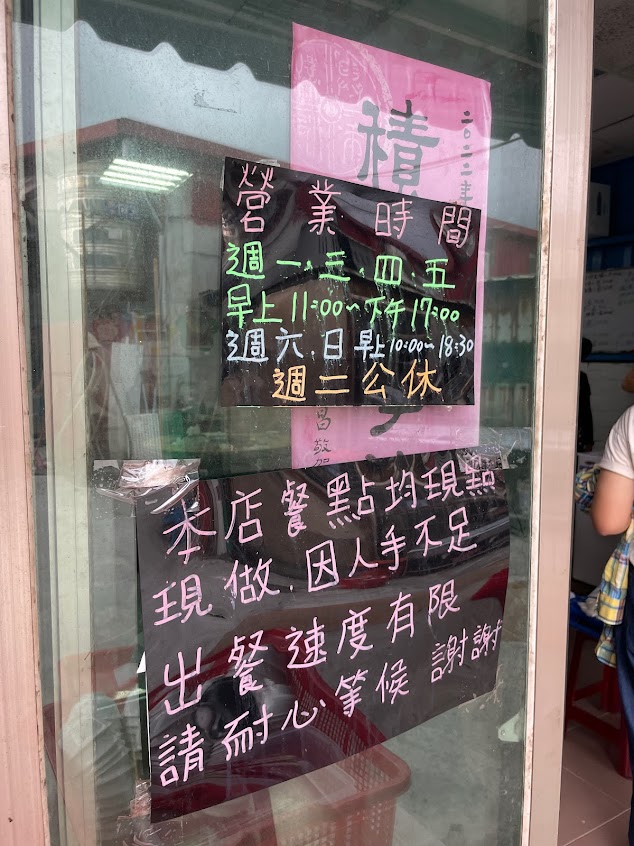 二〇二二年
積
營業時間
週一、三、四、五
早上11:00~下午17:00
週六、日早上10:00~18:30
週二公休
昌敬賀
本店餐點均現點
現做,因人手不足
出餐速度有限
請耐心等候 謝謝